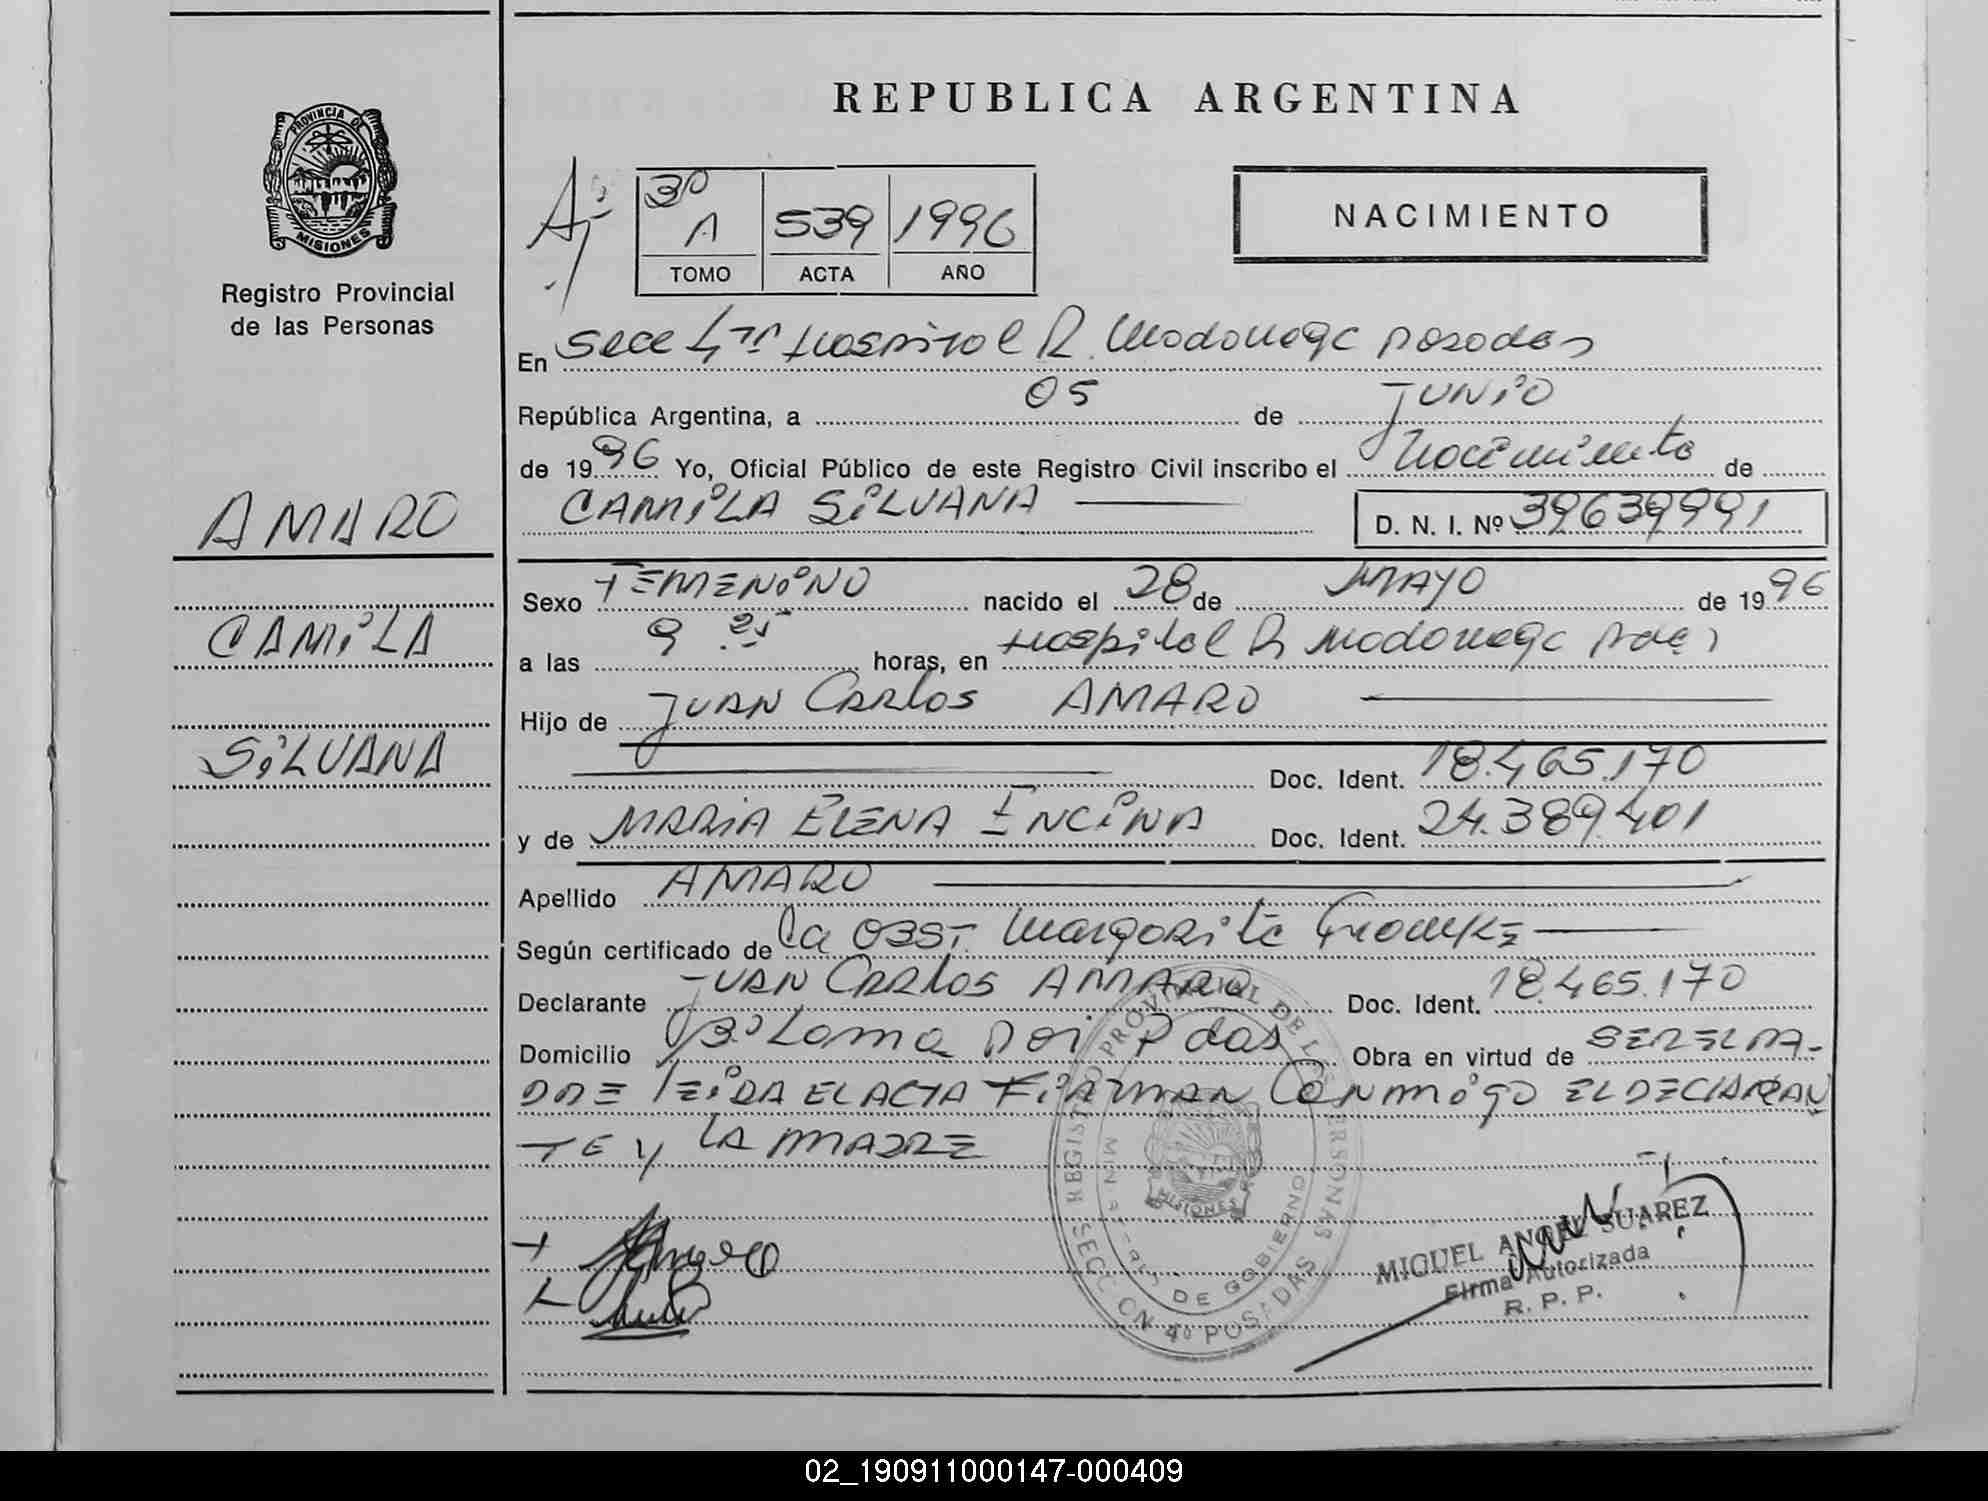 REPUBLICA ARGENTINA
PROVINCIA DE
MISIONES
Registro Provincial
de las Personas
3º
A 539 1996
TOMO ACTA AÑO
NACIMIENTO
En Secc 4ta Hospital R. Madariaga Posadas
República Argentina, a 05 de JUNIO
de 1996 Yo, Oficial Público de este Registro Civil inscribo el Nacimiento de
CAMILA SILVANA D. N. I. Nº 39639991
AMARO
CAMILA
SILVANA
Sexo FEMENINO nacido el 28 de MAYO de 1996
a las 9 25 horas, en Hospital R Madariaga Pdas
Hijo de JUAN CARLOS AMARO
Doc. Ident. 18.465.170
y de MARIA ELENA ENCINA Doc. Ident. 24.389.401
Apellido AMARO
Según certificado de la OBST. Margarita
Declarante JUAN CARLOS AMARO Doc. Ident. 18.465.170
Domicilio Bº Loma Poi Pdas Obra en virtud de SER EL PA-
DRE leiDA EL ACTA FIRMAN CONMIGO EL DECLARAN
TE Y LA MADRE
REGISTRO PROVINCIAL DE LAS PERSONAS
MINISTERIO DE GOBIERNO
MISIONES
SECCION 4º POSADAS
MIGUEL ANGEL SUAREZ
Firma Autorizada
R. P. P.
02_190911000147-000409